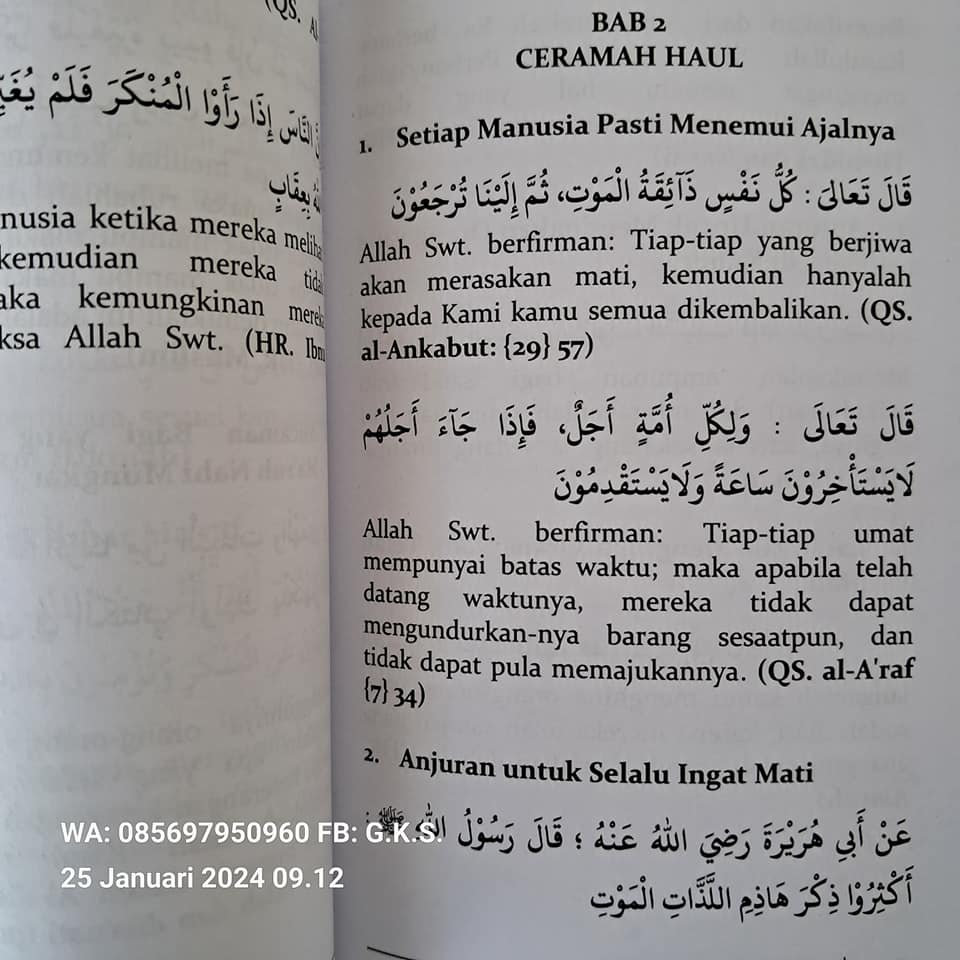 (QS.
النَّاسَ إِذَا رَأَوْا الْمُنْكَرَ فَلَمْ
بِعِقَابٍ
nusia ketika mereka
kemudian mereka
aka kemungkinan
ksa Allah Swt. (HR.
BAB 2
CERAMAH HAUL
1. Setiap Manusia Pasti Menemui Ajalnya
قَالَ تَعَالَىَ : كُلُّ نَفْسٍ ذَآئِقَةُ الْمَوْتِ، ثُمَّ إِلَيْنَا تُرْجَعُوْنَ
Allah Swt. berfirman: Tiap-tiap yang berjiwa
akan merasakan mati, kemudian hanyalah
kepada Kami kamu semua dikembalikan. (QS.
al-Ankabut: {29} 57)
قَالَ تَعَالَى : وَلِكُلِّ أُمَّةٍ أَجَلٌ، فَإِذَا جَآءَ أَجَلُهُمْ
لَايَسْتَأْخِرُوْنَ سَاعَةً وَلَايَسْتَقْدِمُوْنَ
Allah Swt. berfirman: Tiap-tiap umat
mempunyai batas waktu; maka apabila telah
datang waktunya, mereka tidak dapat
mengundurkan-nya barang sesaatpun, dan
tidak dapat pula memajukannya. (QS. al-A'raf
{7} 34)
2. Anjuran untuk Selalu Ingat Mati
عَنْ أَبِي هُرَيْرَةَ رَضِيَ اللهُ عَنْهُ ؛ قَالَ رَسُوْلُ اللهِ ﷺ :
أَكْثِرُوْا ذِكْرَ هَاذِمِ اللَّذَّاتِ الْمَوْتِ
WA: 085697950960 FB: G.K.S.
25 Januari 2024 09.12